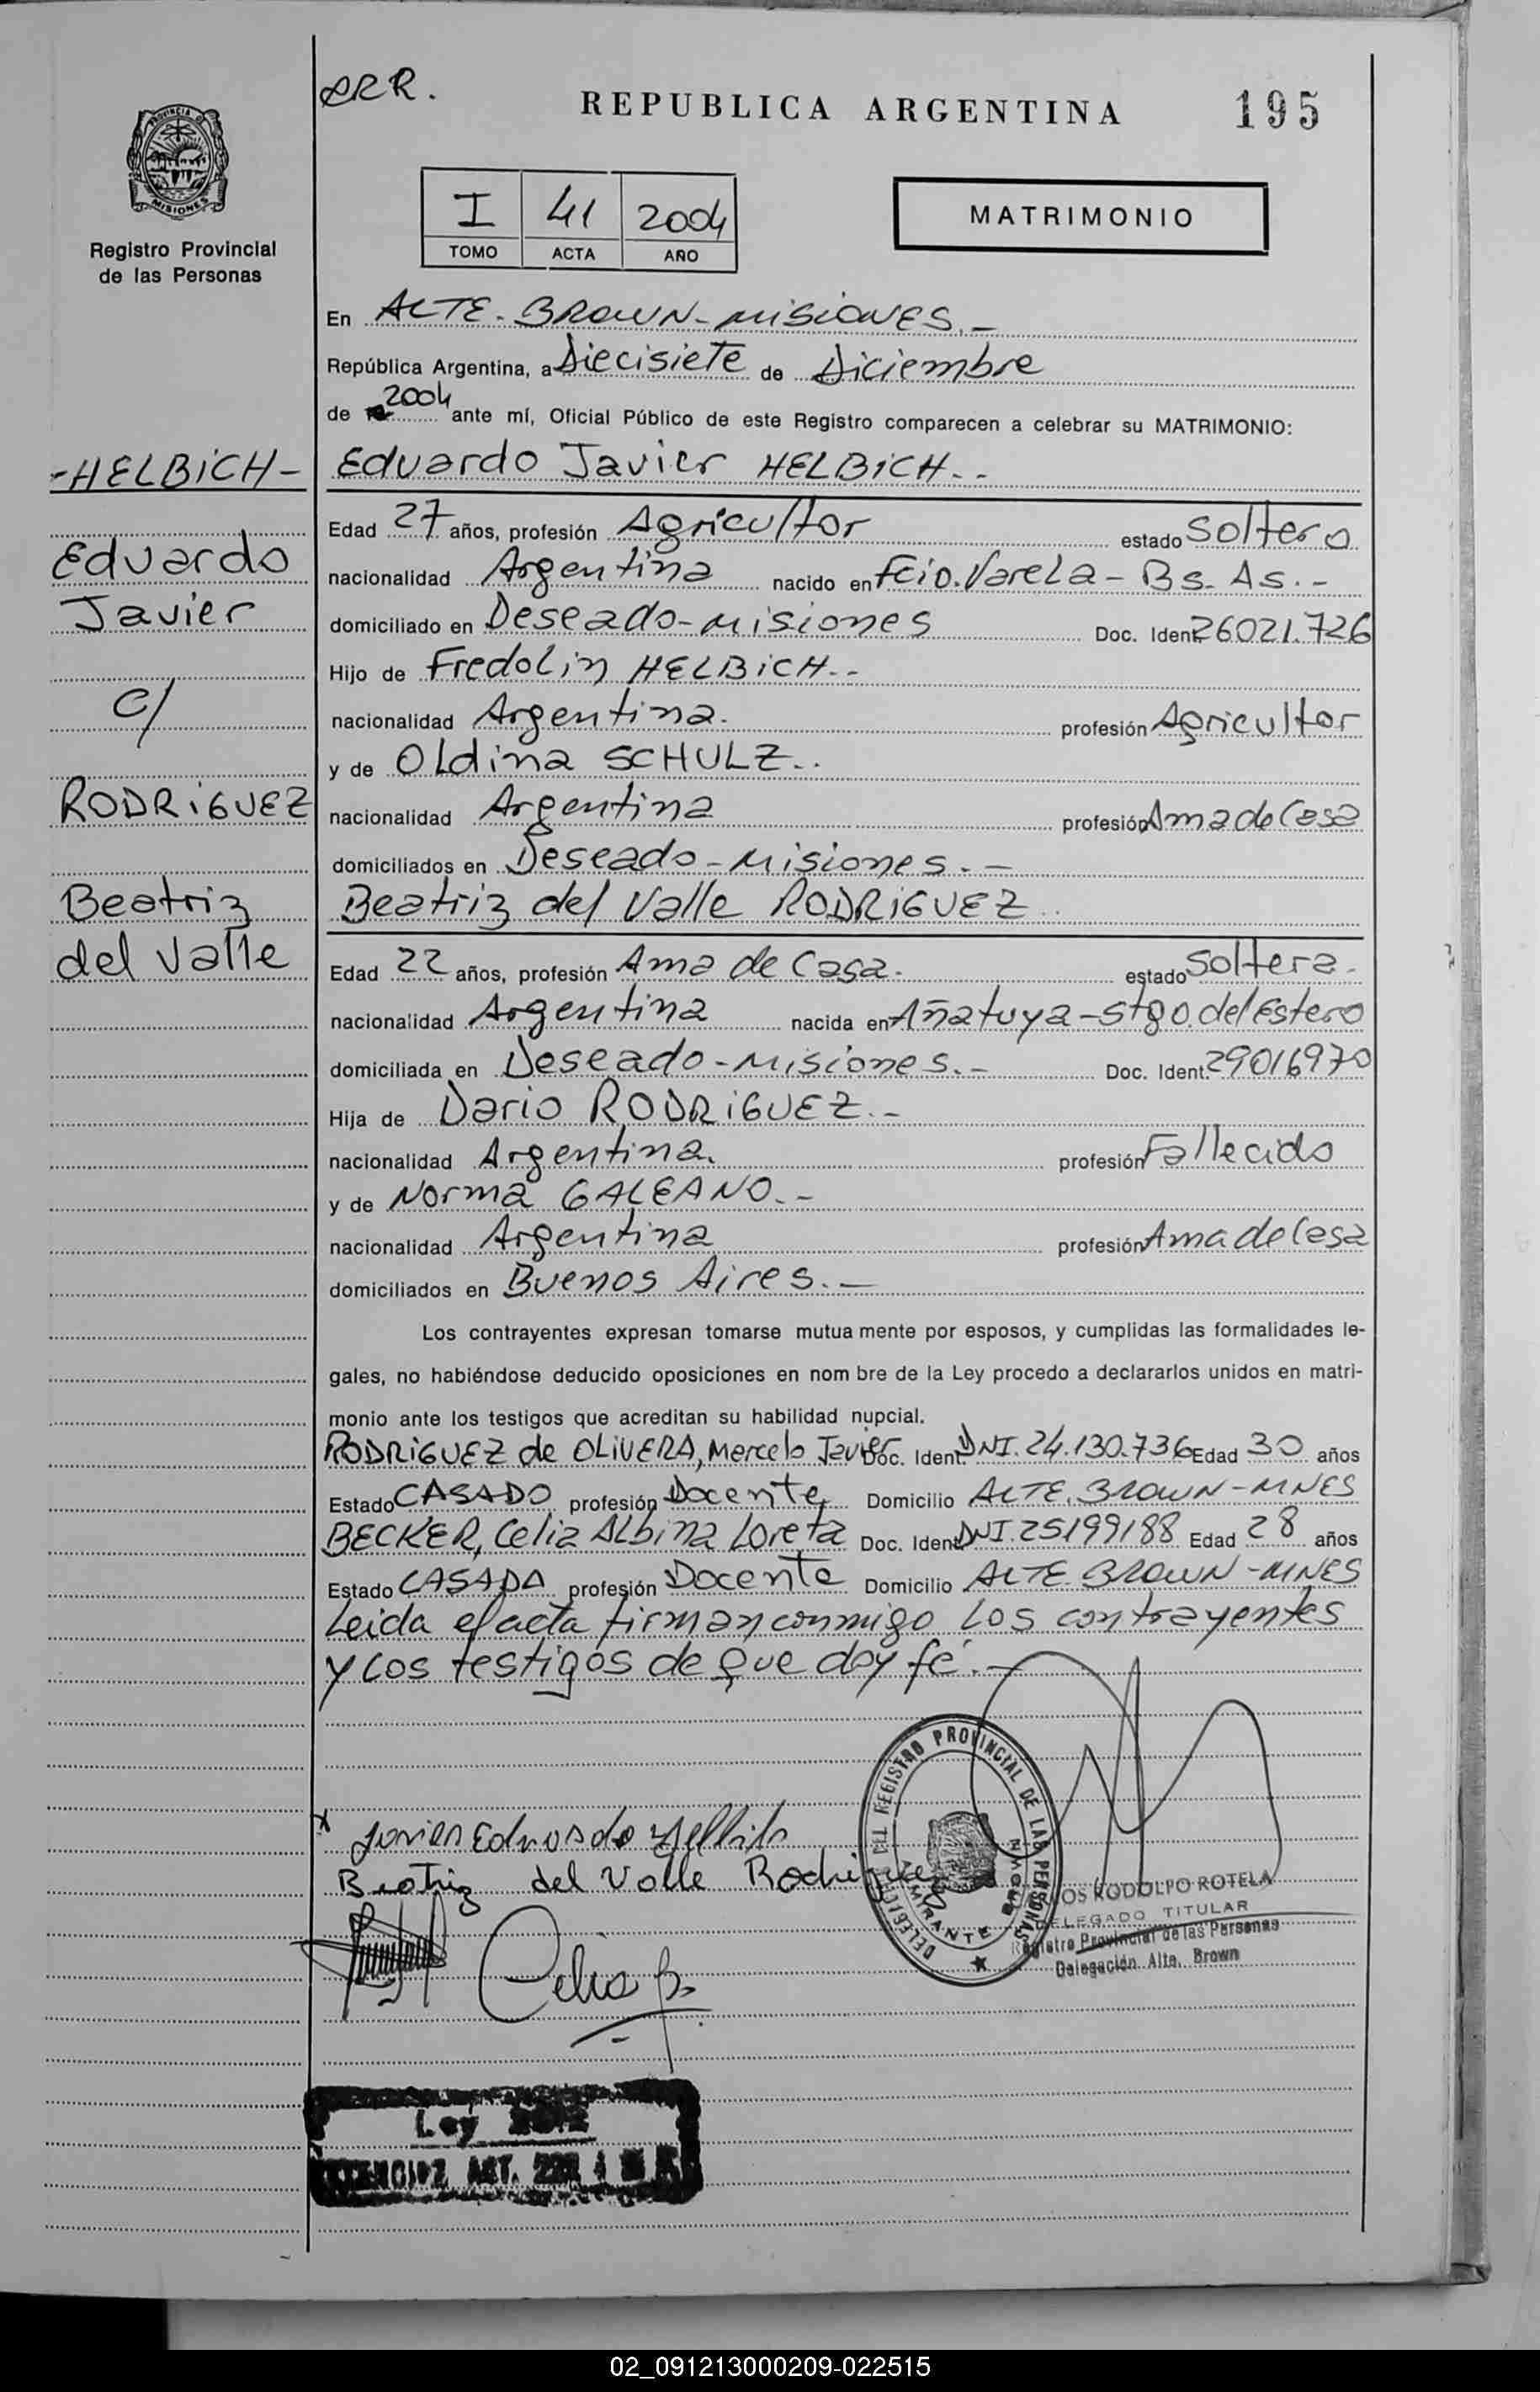 ERR.
REPUBLICA ARGENTINA 195
PROVINCIA DE
MISIONES
Registro Provincial
de las Personas
I 41 2004
TOMO ACTA AÑO
MATRIMONIO
En ALTE- BROWN- MISIONES.-
República Argentina, a Diecisiete de Diciembre
de 2004 ante mí, Oficial Público de este Registro comparecen a celebrar su MATRIMONIO:
-HELBICH- Eduardo Javier HELBICH.-
Edad 27 años, profesión Agricultor estado Soltero
Eduardo nacionalidad Argentina nacido en Fcio. Varela- Bs. As.-
Javier domiciliado en Deseado-Misiones Doc. Ident. 26021.726
Hijo de Fredolin HELBICH.-
C/ nacionalidad Argentina. profesión Agricultor
y de Oldina SCHULZ..
RODRIGUEZ nacionalidad Argentina profesión Ama de Casa
domiciliados en Deseado-Misiones.-
Beatriz Beatriz del Valle RODRIGUEZ
del Valle Edad 22 años, profesión Ama de Casa. estado Soltera.
nacionalidad Argentina nacida en Añatuya-Stgo. del Estero
domiciliada en Deseado-Misiones.- Doc. Ident. 29016970
Hija de Dario RODRIGUEZ.-
nacionalidad Argentina. profesión Fallecido
y de Norma GALEANO.-
nacionalidad Argentina profesión Ama de Casa
domiciliados en Buenos Aires.-
Los contrayentes expresan tomarse mutua mente por esposos, y cumplidas las formalidades le-
gales, no habiéndose deducido oposiciones en nom bre de la Ley procedo a declararlos unidos en matri-
monio ante los testigos que acreditan su habilidad nupcial.
RODRIGUEZ de OLIVERA, Marcelo Javier Doc. Ident. DNI. 24.130.736 Edad 30 años
Estado CASADO profesión Docente Domicilio ALTE. BROWN-MNES
BECKER, Celia Albina Loreta Doc. Ident. DNI. 25199188 Edad 28 años
Estado CASADA profesión Docente Domicilio ALTE BROWN-MNES
Leida el acta firman conmigo Los contrayentes
y Los testigos de que doy fé.-
DEL REGISTRO PROVINCIAL DE LAS PERSONAS
x Javier Eduardo Helbich
Beatriz del Valle Rodriguez
OS RODOLFO ROTELA
DELEGADO TITULAR
Registro Provincial de las Personas
Delegación Alte. Brown
Celia B.
Ley
ART.
02_091213000209-022515